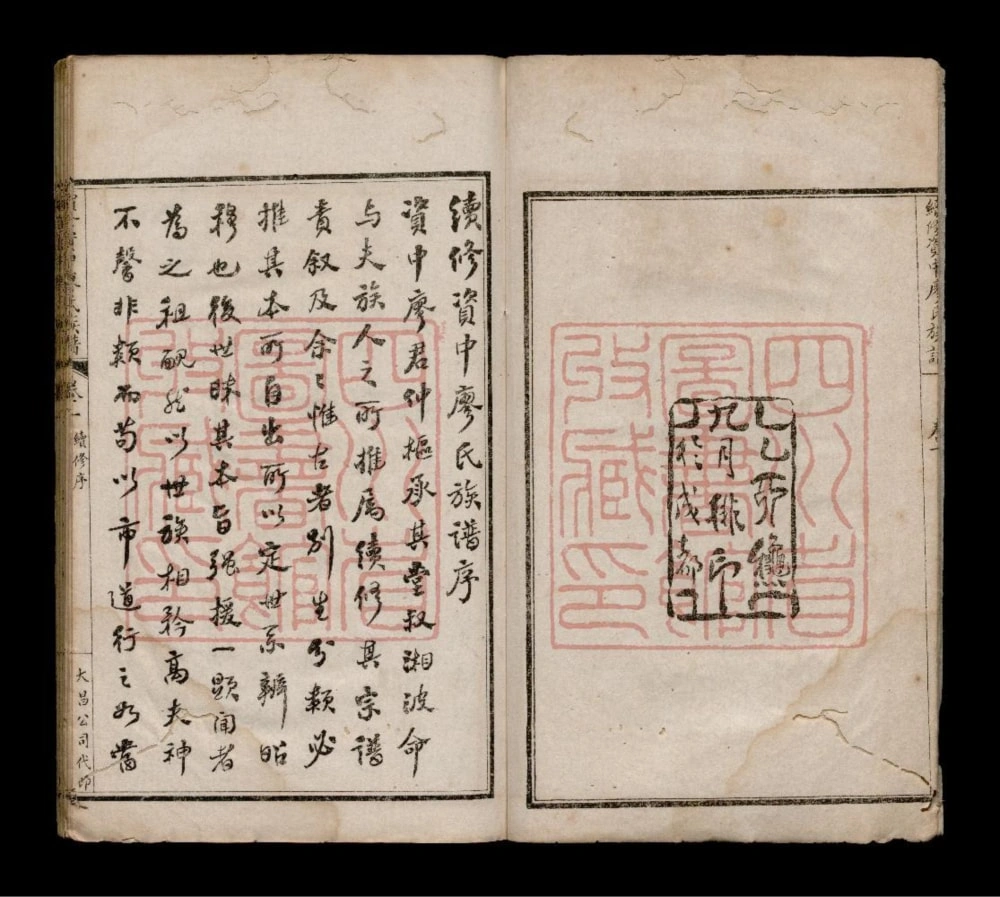 續修資中廖氏族譜
卷一
四川省
圖書館
收藏印
九月排印
於成都
續修資中廖氏族譜序
資中廖君仲樞承其堂叔湘波命
与夫族人之所推属續修其宗譜
责叙及余〻惟古者别生分類必
推其本所自出所以定世系辨昭
穆也後世昧其本旨强援一顕聞者
為之祖然以世族相矜高夫神
不馨非類而苟以市道行之如當
卷一
續修序
大昌公司代印